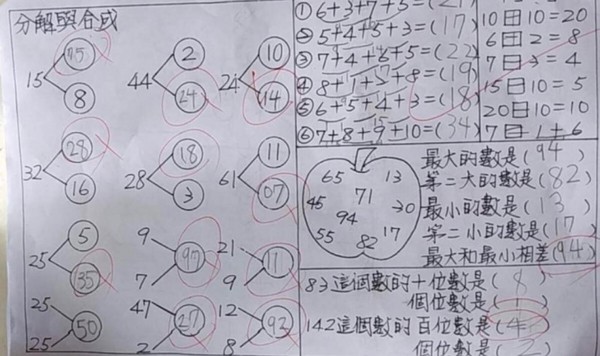 分解與合成
15 75 8
44 2 24
24 10 14
32 28 16
28 18 3
61 11 07
25 5 35
9 7 97
21 9 11
25 25 50
47 2 27
12 8 92
① 6+3+7+5=(21)
② 5+4+5+3=(17)
③ 7+4+6+5=(22)
④ 8+1+2+8=(19)
⑤ 6+5+4+3=(18)
⑥ 7+8+9+10=(34)
10 10=20
6 2=8
7 3=4
15 10=5
20 10=10
7 1+6
65 13
45 71 30
94
55 82 17
最大的數是(94)
第二大的數是(82)
最小的數是(13)
第二小的數是(17)
最大和最小相差(94)
83這個數的十位數是(8)
個位數是( )
142這個數的百位數是(4)
個位數是(2